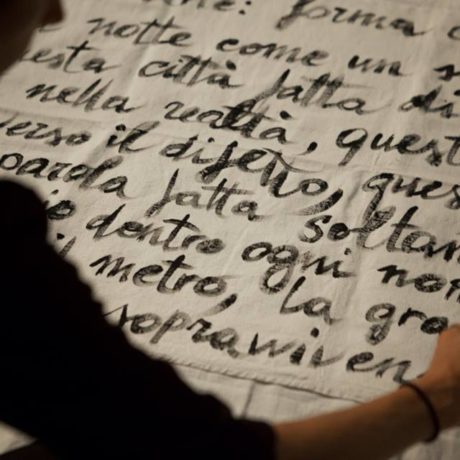 ne: forma c
e notte come un s
esta città fatta di
nella realtà, quest
erso il difetto, ques
parola fatta soltan
io dentro ogni nom
il metro, la gra
sopravviven